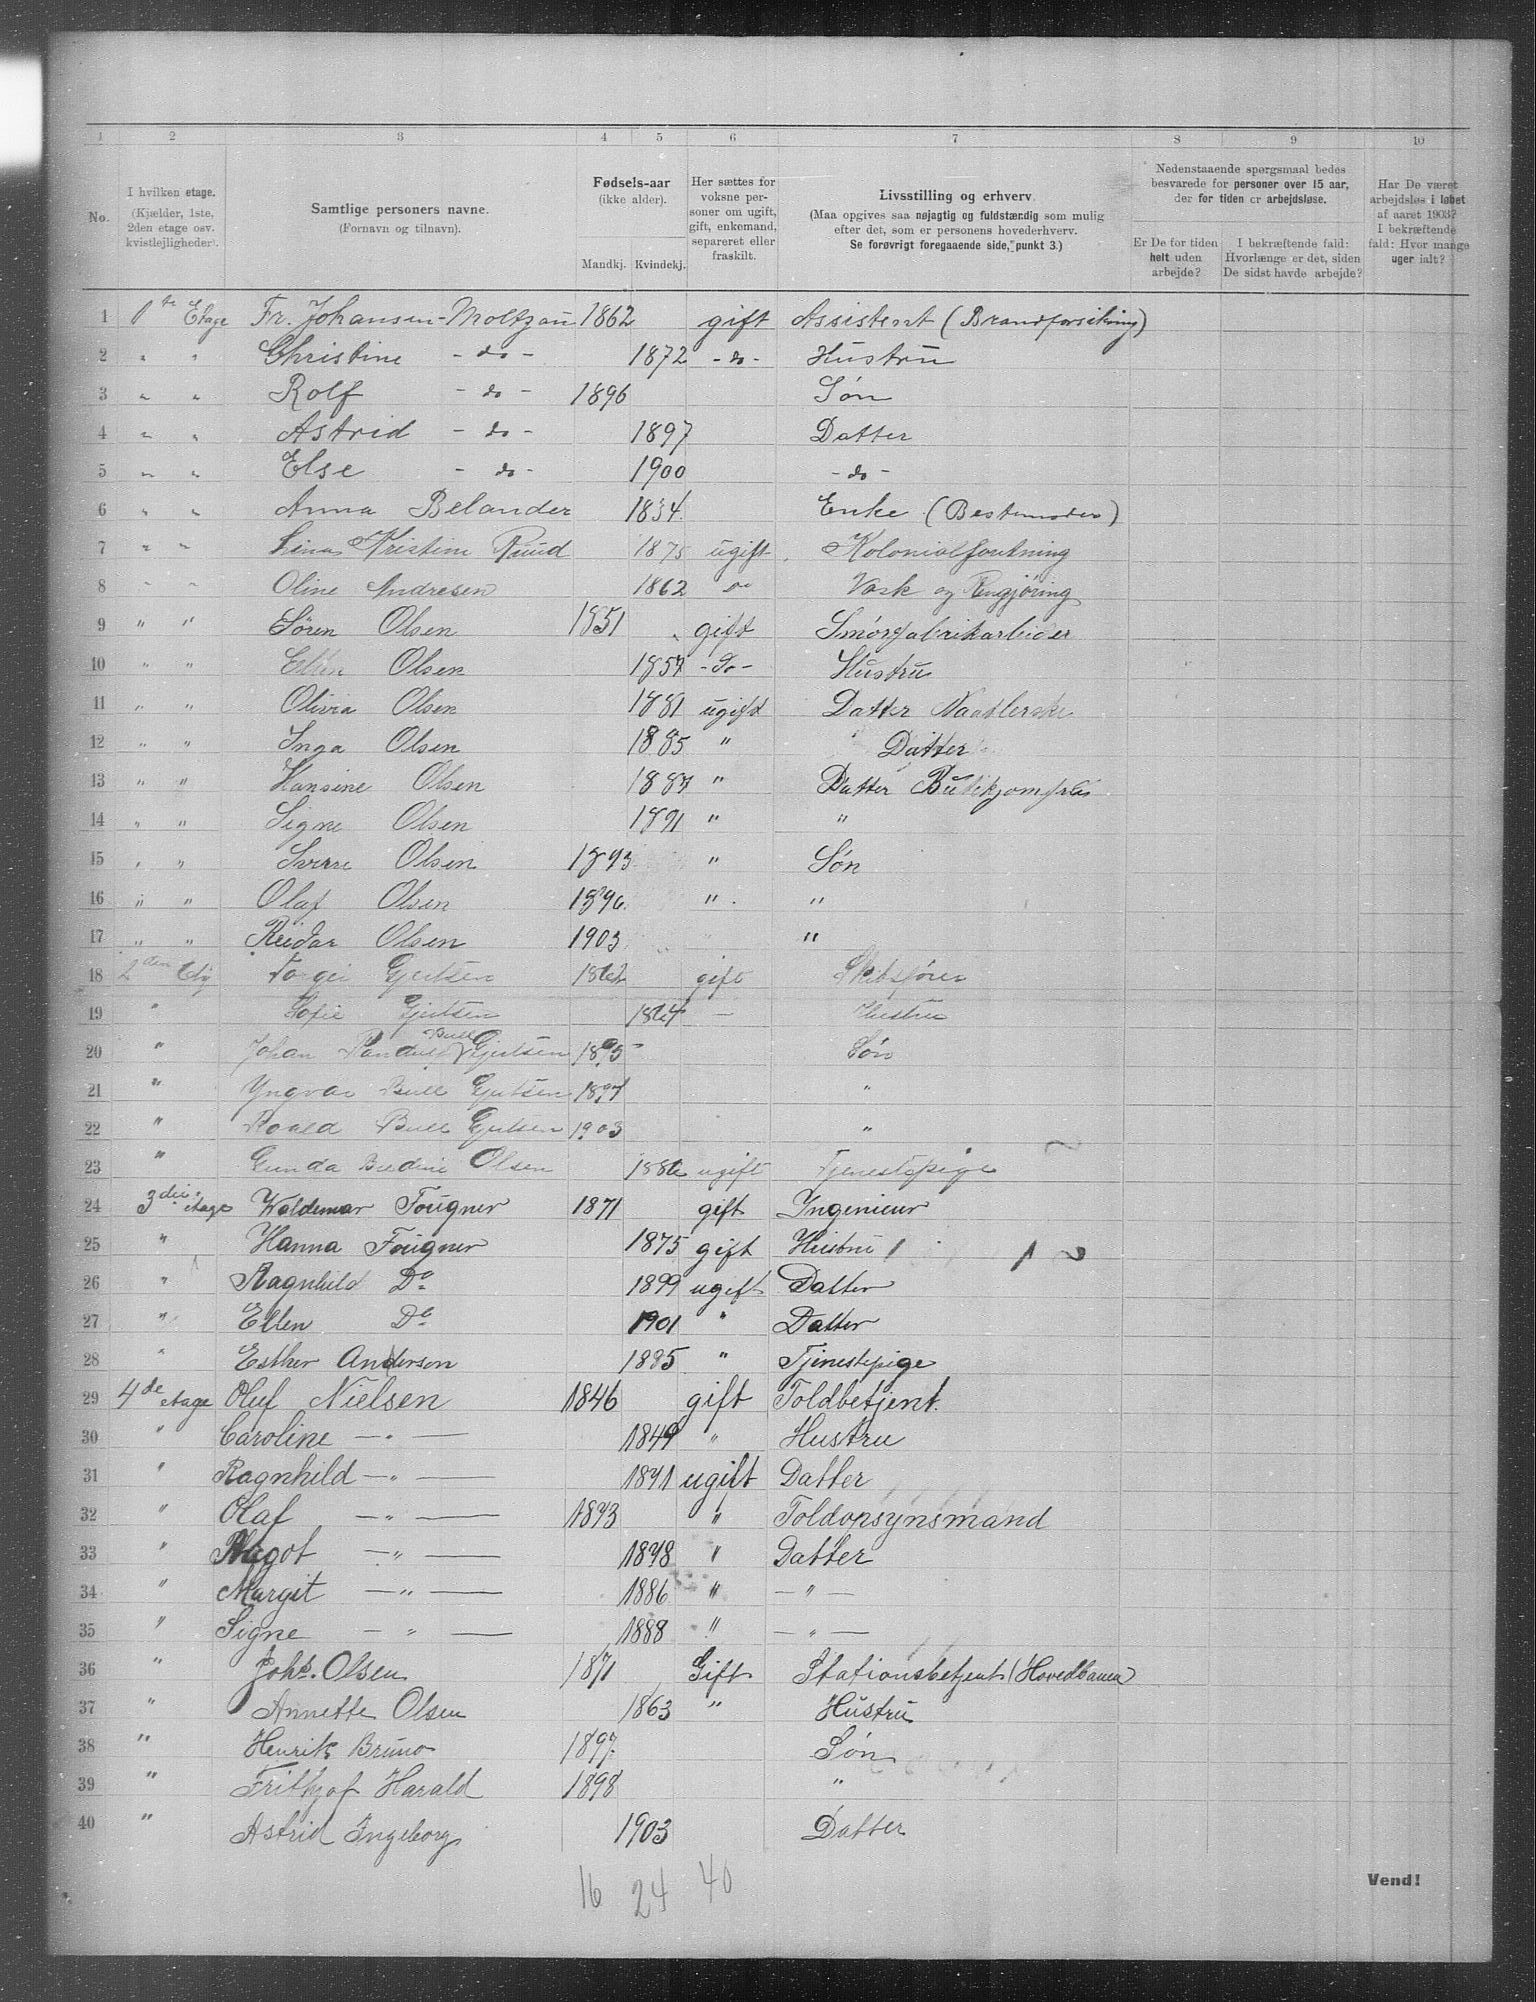 1 2 3 4 5 6 7 8 9 10
No. I hvilken etage. (Kjælder, 1ste, 2den etage osv. kvistlejligheder).
Samtlige personers navne. (Fornavn og tilnavn).
Fødsels-aar (ikke alder). Mandkj. Kvindekj.
Her sættes for voksne personer om ugift, gift, enkemand, separeret eller fraskilt.
Livsstilling og erhverv. (Maa opgives saa nøjagtig og fuldstændig som mulig efter det, som er personens hovederhverv. Se forøvrigt foregaaende side, punkt 3.)
Nedenstaaende spørgsmaal bedes besvarede for personer over 15 aar, der for tiden er arbejdsløse.
Er De for tiden helt uden arbejde?
I bekræftende fald: Hvorlænge er det, siden De sidst havde arbejde?
Har De været arbejdsløs i løbet af aaret 1903? I bekræftende fald: Hvor mange uger ialt?
1 1ste Etage Fr. Johansen-Moltzau 1862 gift Assistent (Brandforsikring)
2 " " Christine - do - 1872 - do - Hustru
3 " " Rolf - do - 1896 Søn
4 " " Astrid - do - 1897 Datter
5 " " Else - do - 1900 - do -
6 " " Anna Belander 1834 Enke (Bestemoder)
7 " " Kristine Ruud 1875 ugift Kolonialforretning
8 " " Oline Andresen 1862 do Vask og Rengjøring
9 " " Sören Olsen 1851 gift Smørfabrikarbeider
10 " " Ellen Olsen 1857 - Do - Hustru
11 " " Olivia Olsen 1881 ugift Datter
12 " " Inga Olsen 1885 " Datter
13 " " Hansine Olsen 1887 " Datter Butikjomfru
14 " " Signe Olsen 1891 " "
15 " " Sverre Olsen 1893 " Søn
16 " " Olaf Olsen 1896 " "
17 " " Reidar Olsen 1903 "
18 2den Etg Torgei Gjertsen 1862 gift Skibsfører
19 " Sofie Gjertsen 1864 - Hustru
20 " Johan Randulf Bull Gjertsen 1895 Søn
21 " Yngvar Bull Gjertsen 1897 "
22 " Roald Bull Gjertsen 1903 "
23 " Gunda Olsen 1886 ugift Tjenestepige
24 3die etage Waldemar Fougner 1871 gift Ingeniør
25 " Hanna Fougner 1875 gift Hustru
26 " Ragnhild Do 1899 ugift Datter
27 " Ellen Do 1901 " Datter
28 " Esther Anderson 1885 " Tjenestepige
29 4de etage Oluf Nielsen 1846 gift Toldbetjent.
30 " Caroline — " — 1849 " Hustru
31 " Ragnhild — " — 1871 ugift Datter
32 " Olaf — " — 1873 " Toldopsynsmand
33 " Magot — " — 1878 " Datter
34 " Margit — " — 1886 " — " —
35 " Signe — " — 1888 " — " —
36 " Johs. Olsen 1871 Gift Stationsbetjent (Hovedbanen
37 " Annette Olsen 1863 " Hustru
38 " Henrik Bruno 1897 Søn
39 " Frithjof Harald 1898 "
40 " Astrid Ingeborg 1903 Datter
16 24 40
Vend!